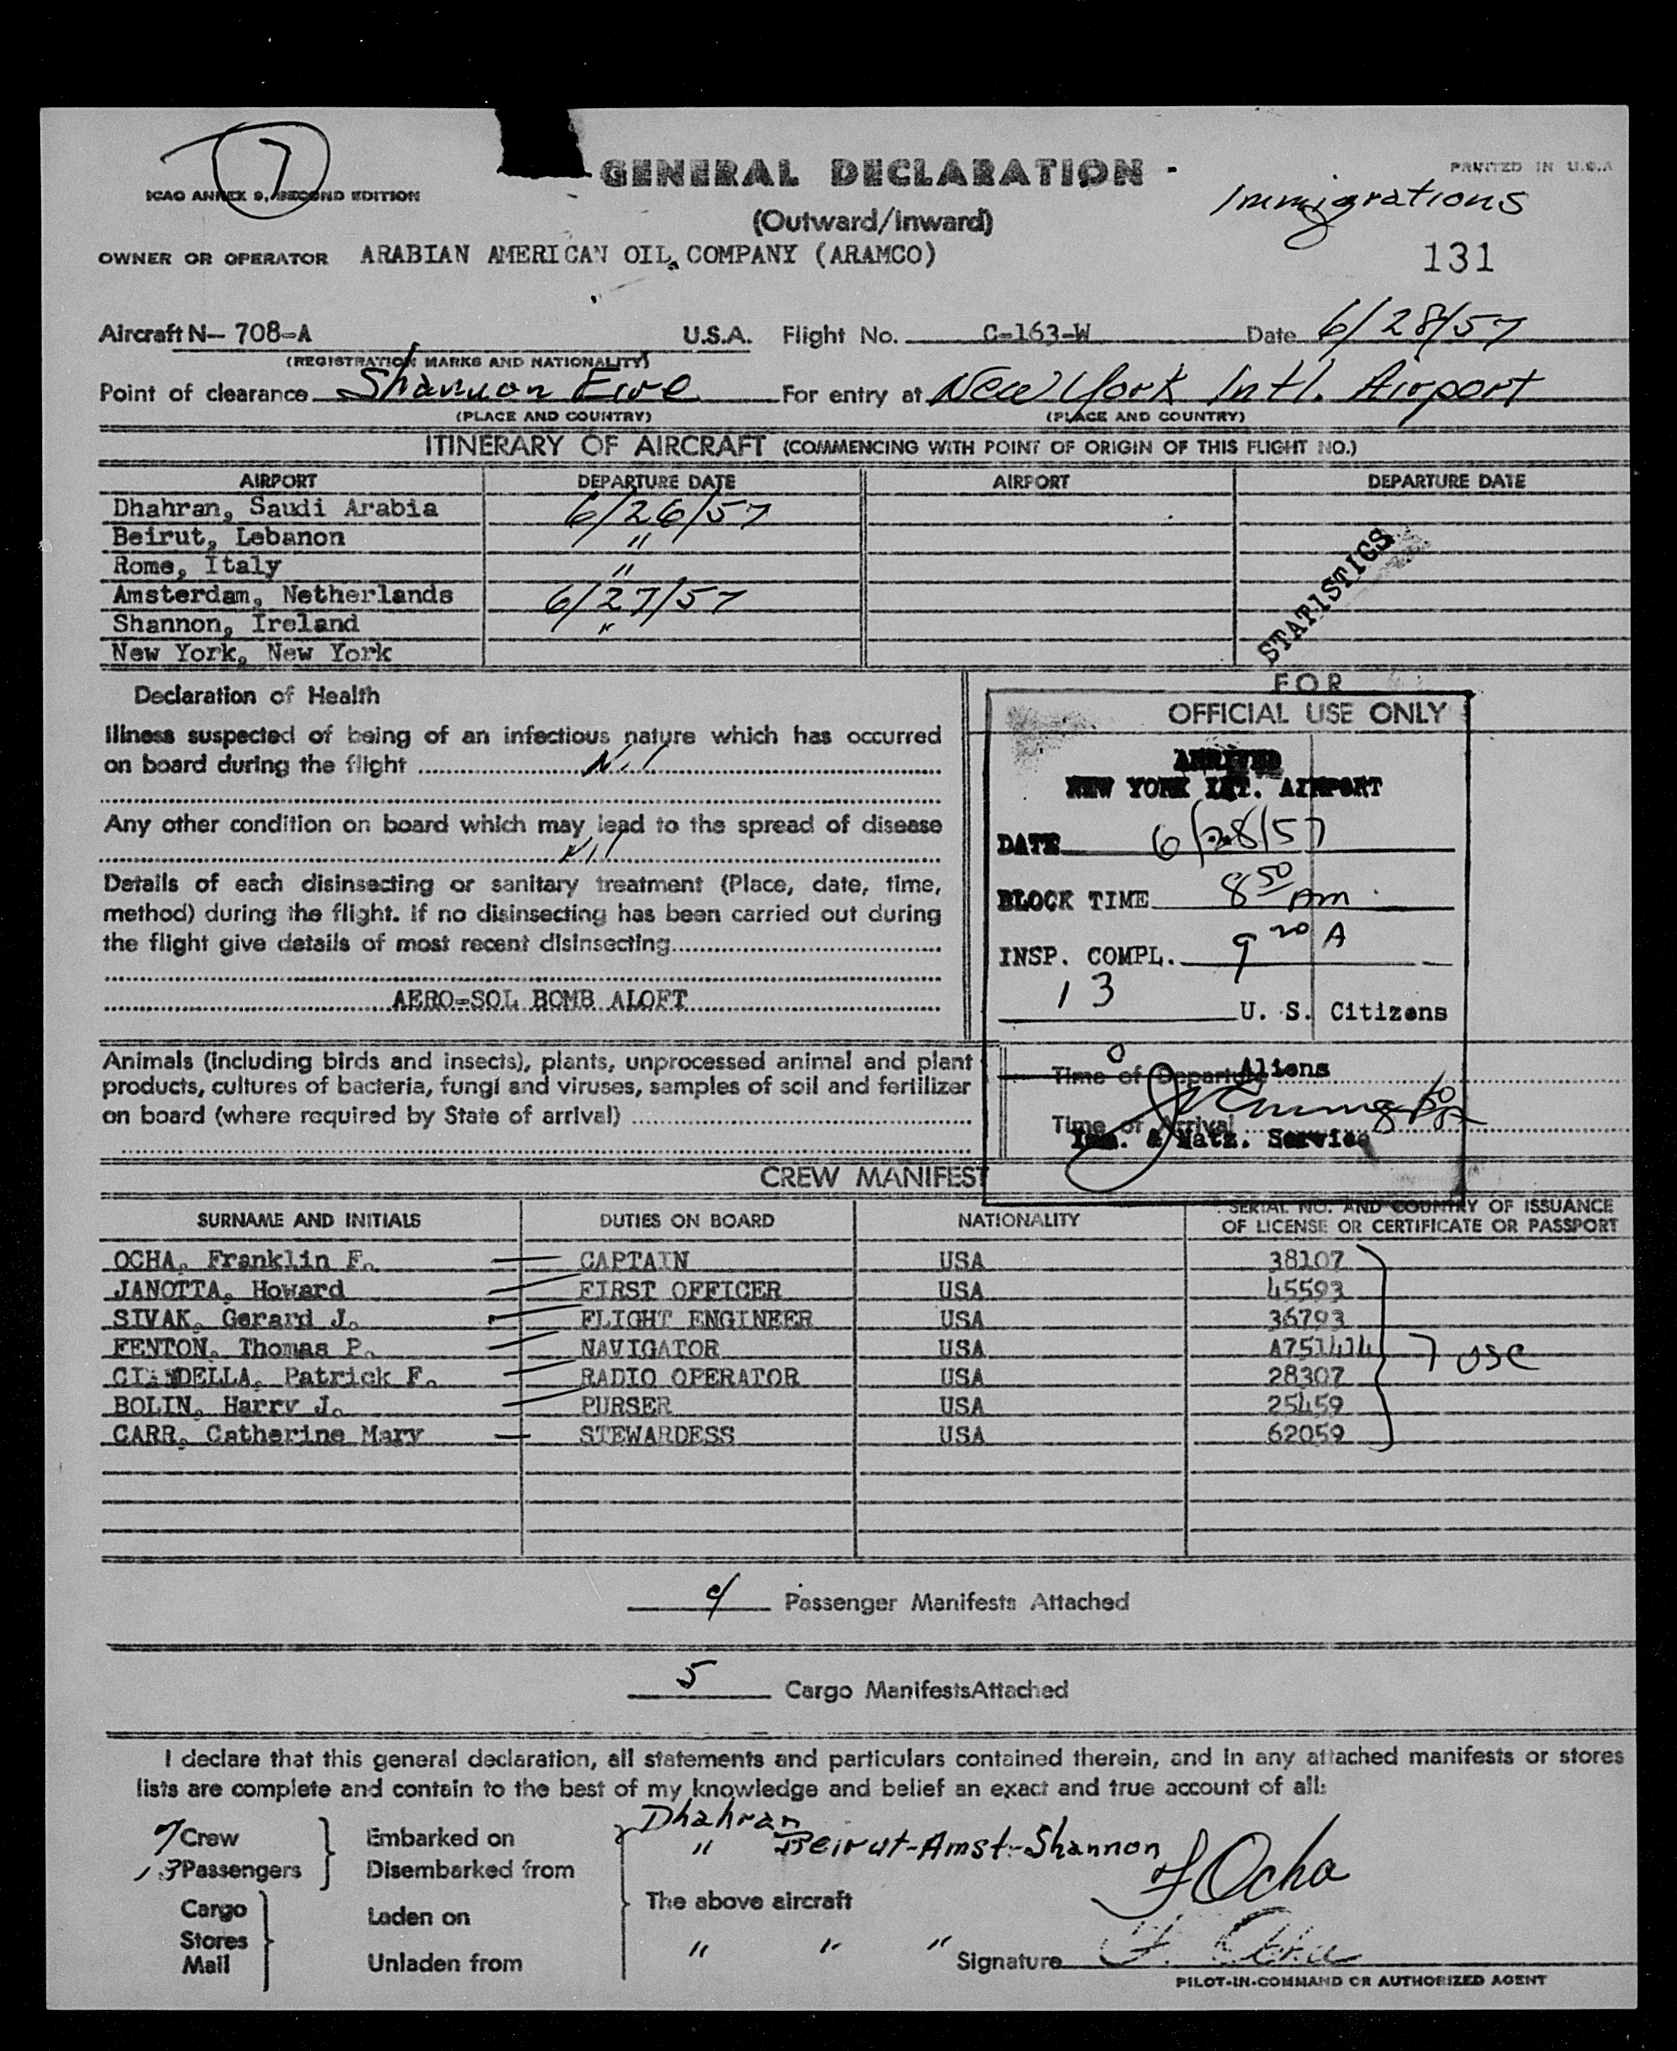 7
GENERAL DECLARATION
PRINTED IN U.S.A
ICAO ANNEX 9, SECOND EDITION
Immigrations
(Outward/Inward)
OWNER OR OPERATOR ARABIAN AMERICAN OIL COMPANY (ARAMCO)
131
Aircraft N- 708-A U.S.A. Flight No. C-163-W Date 6/28/57
(REGISTRATION MARKS AND NATIONALITY)
Point of clearance Shannon Eire For entry at New York Intl. Airport
(PLACE AND COUNTRY) (PLACE AND COUNTRY)
ITINERARY OF AIRCRAFT (COMMENCING WITH POINT OF ORIGIN OF THIS FLIGHT NO.)
AIRPORT DEPARTURE DATE AIRPORT DEPARTURE DATE
Dhahran, Saudi Arabia 6/26/57
Beirut, Lebanon "
Rome, Italy "
Amsterdam, Netherlands 6/27/57
Shannon, Ireland "
New York, New York
STATISTICS
Declaration of Health
Illness suspected of being of an infectious nature which has occurred
on board during the flight Nil
Any other condition on board which may lead to the spread of disease
Nil
Details of each disinsecting or sanitary treatment (Place, date, time,
method) during the flight. If no disinsecting has been carried out during
the flight give details of most recent disinsecting
AERO-SOL BOMB ALOFT
FOR
OFFICIAL USE ONLY
ARRIVED
NEW YORK INT. AIRPORT
DATE 6/28/57
BLOCK TIME 8 50 Am
INSP. COMPL. 9 20 A
13 U. S. Citizens
0 Aliens
Time of Departure
Time of Arrival
Imm. & Natz. Service
Animals (including birds and insects), plants, unprocessed animal and plant
products, cultures of bacteria, fungi and viruses, samples of soil and fertilizer
on board (where required by State of arrival)
CREW MANIFEST
SURNAME AND INITIALS DUTIES ON BOARD NATIONALITY SERIAL NO. AND COUNTRY OF ISSUANCE
OF LICENSE OR CERTIFICATE OR PASSPORT
OCHA, Franklin F. CAPTAIN USA 38107
JANOTTA, Howard FIRST OFFICER USA 45593
SIVAK, Gerard J. FLIGHT ENGINEER USA 36793
FENTON, Thomas P. NAVIGATOR USA A751414
Patrick F. RADIO OPERATOR USA 28307
BOLIN, Harry J. PURSER USA 25459
CARR, Catherine Mary STEWARDESS USA 62059
7 USC
Passenger Manifests Attached
5 Cargo Manifests Attached
I declare that this general declaration, all statements and particulars contained therein, and in any attached manifests or stores
lists are complete and contain to the best of my knowledge and belief an exact and true account of all:
7 Crew Embarked on Dhahran
13 Passengers Disembarked from " Beirut-Amst-Shannon
F Ocha
Cargo Laden on The above aircraft
Stores
Mail Unladen from " " "
Signature F. Ocha
PILOT-IN-COMMAND OR AUTHORIZED AGENT